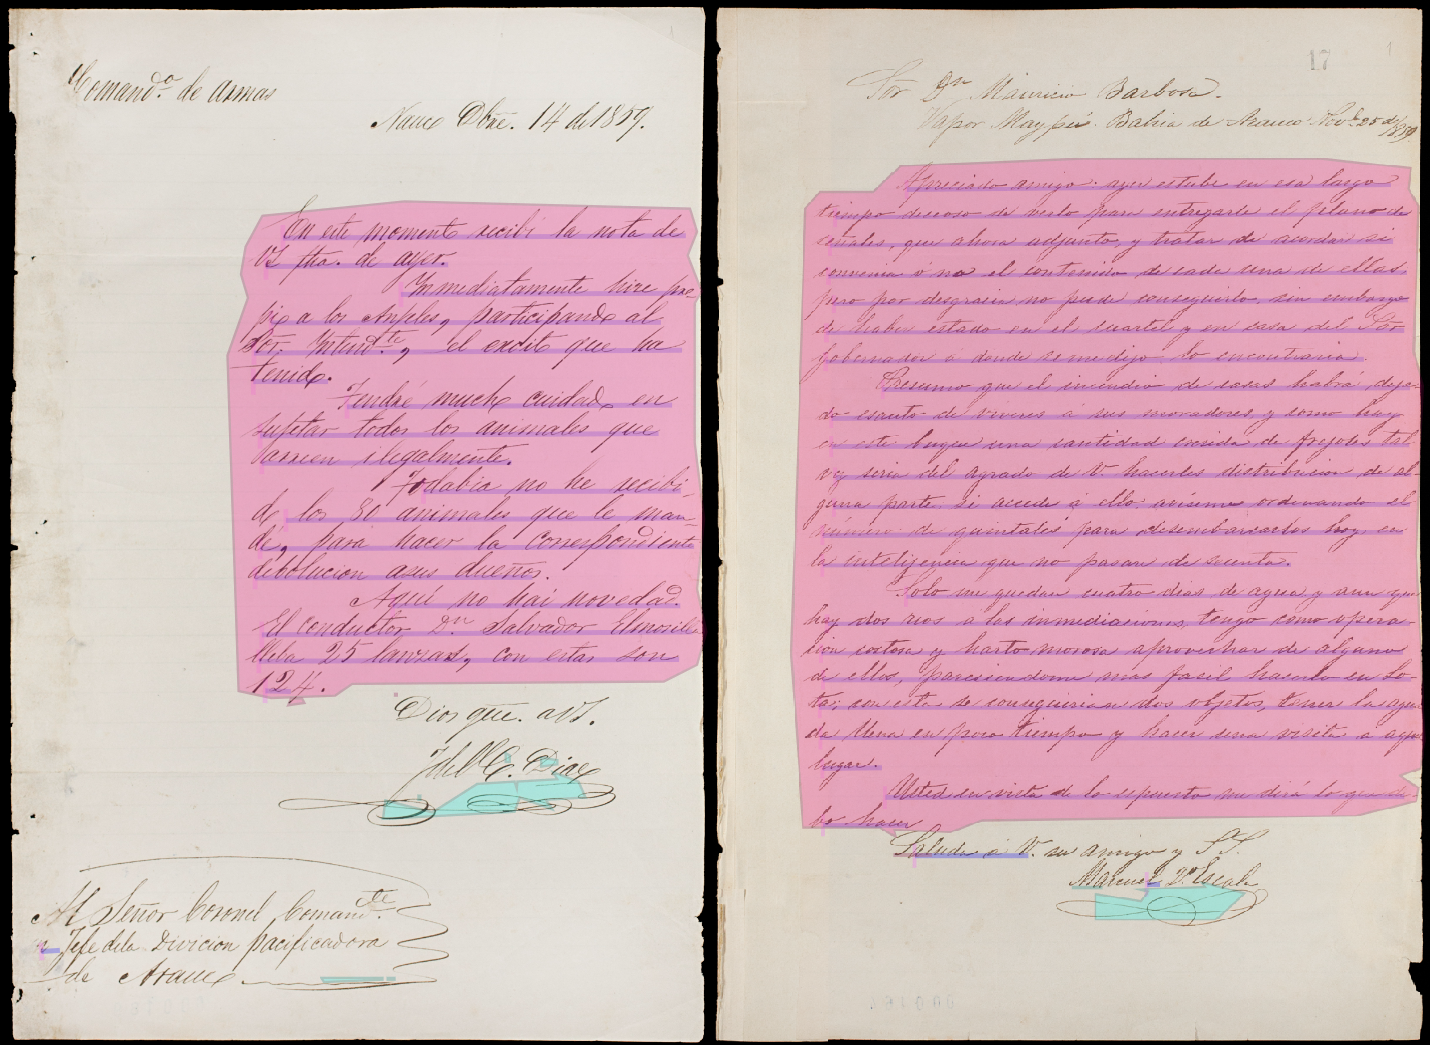 Comand.ª de armas
Nacto Dbre. 14 de 1859.
En este momento recibi la nota de
VS fha. de ayer.
Inmediatamente hice pro-
pio a los Anjeles, participando al
Sor. Intend.te, el exsito que ha
tenido.
Tendré mucho cuidado en
sujetar todos los animales que
sarreen ilegalmente.
Todabia no he recibi-
do los 80 animales que le man-
dé, para hacer la correspondiente
debolucion asus dueños.
Aqui no hai novedad.
El conductor Dn Salvador Elmosilla
lleba 25 lanzas, con estas son
124.
Dios gue. a VS.
C. Diaz
Al Señor Coronel Comand.te
Jefe dela Divicion pacificadora
de Arauco
17
Sor Dn Mauricio Barbosa.
Vapor Maypú. Bahia de Arauco Nov.e 25 de/1859
Apreciado amigo: ayer estube en esa largo
tiempo deseoso de verlo para entregarle el plano de
señales, que ahora adjunto, y tratar de acordar si
convenia ó no el contenido de cada una de ellas
pero por desgracia no pude conseguirlo, sin embargo
de haber estado en el cuartel y en casa del Sor
Gobernador á donde se me dijo lo encontraria.
Presumo que el incendio de casas habrá deja-
do escasto de viveres á sus moradores, y como hay
en este buque una cantidad crecida de frejoles tal
vez seria del agrado de V. hacerles distribucion de al
guna parte. Si accede á ello, avíseme ordenando el
número de quintales para desembarcarlos hoy, en
la intelijencia que no pasan de secenta.
Solo me quedan cuatro dias de agua y aun que
hay dos rios á las inmediaciones, tengo como opera-
cion costosa y harto morosa aprovechar de alguno
de ellos, pareciendome mas facil hacerlo en Lo-
ta; con esta se conseguirian dos objetos, tener la agua
da llena en poco tiempo y hacer una visita á aquel
lugar.
Usted en vista de lo espuesto me dirá lo que de-
bo hacer
Saluda á V. su amigo y S. S.
Manuel 2º Escala